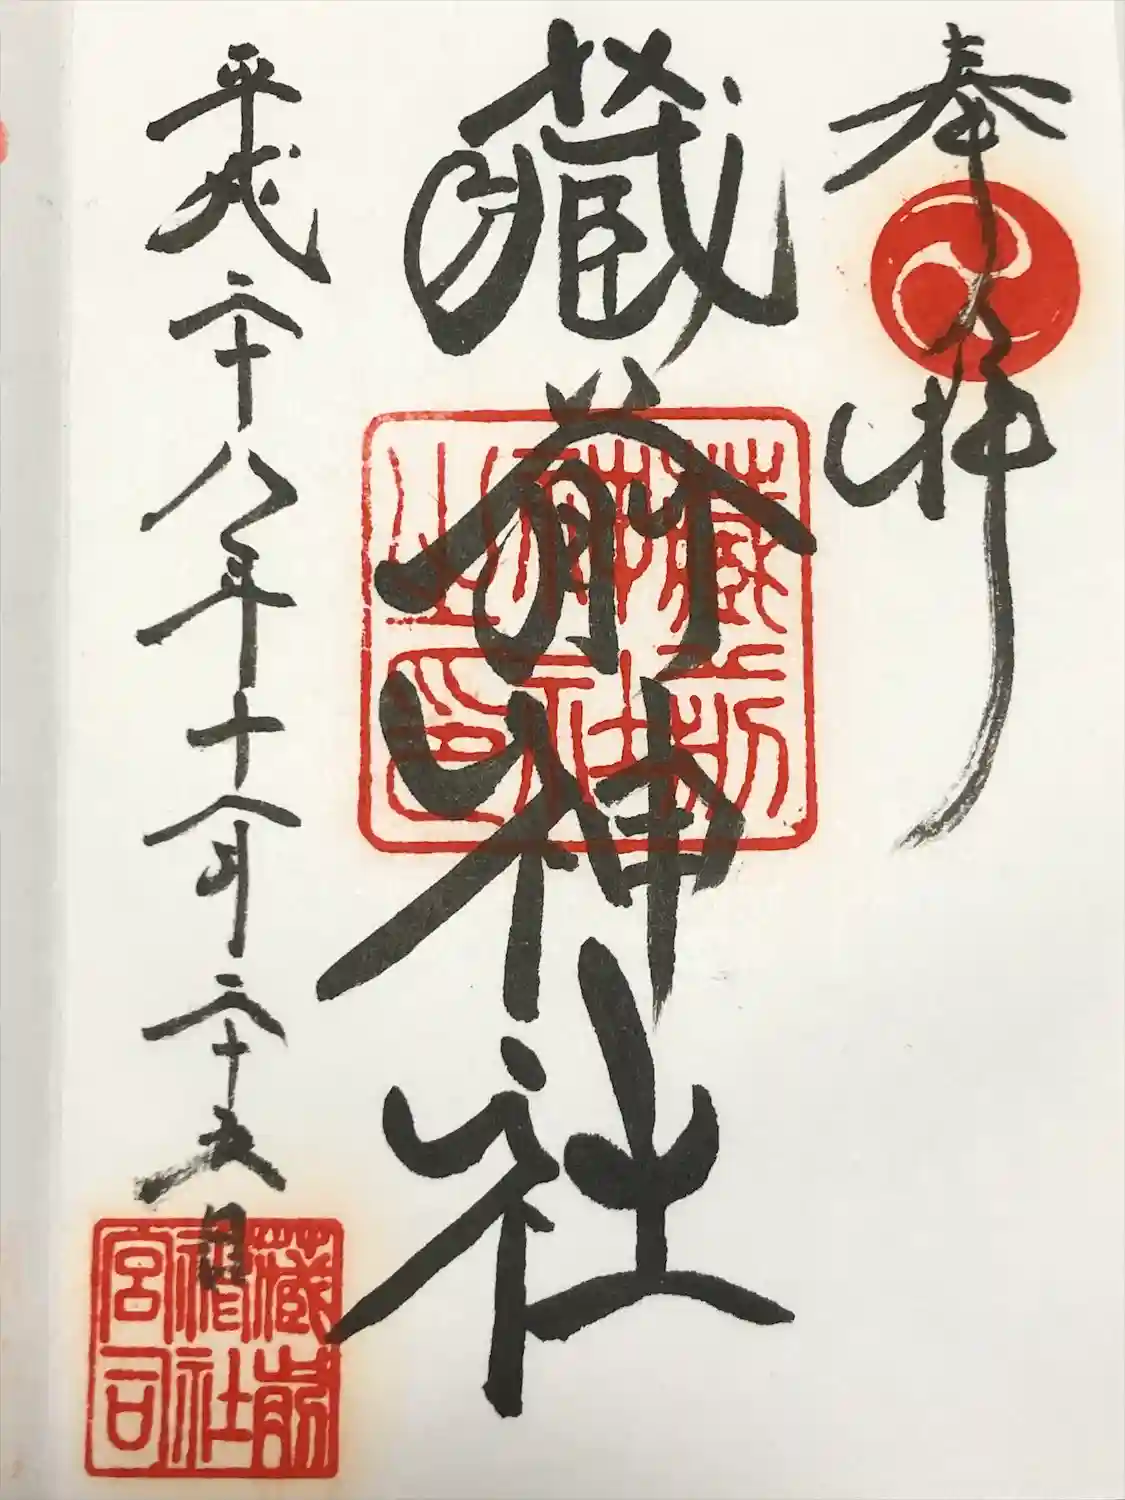 奉拝
藏前神社
平成二十八年十一月二十五日
藏前神社之印
藏前神社宮司